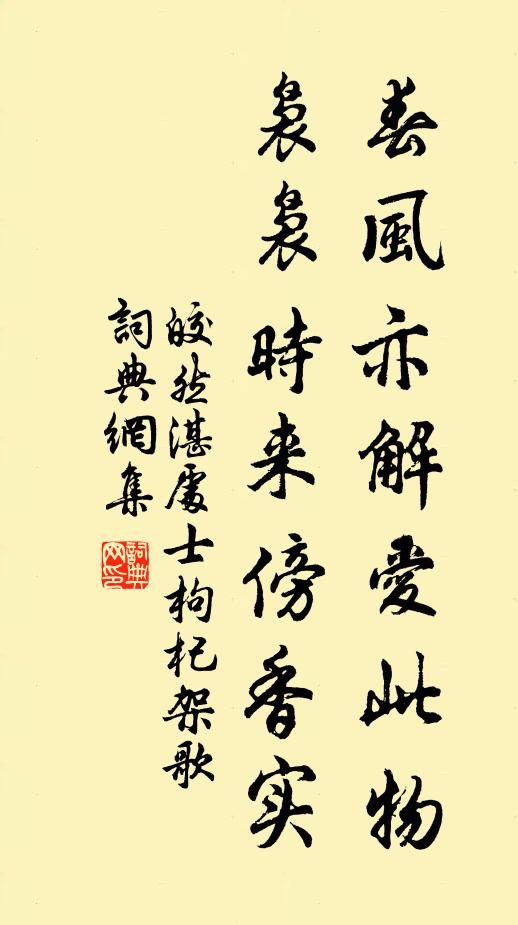 春風亦解愛此物
裊裊時来傍香实
皎然湛處士枸杞架歌
詞典網集
詞典网印